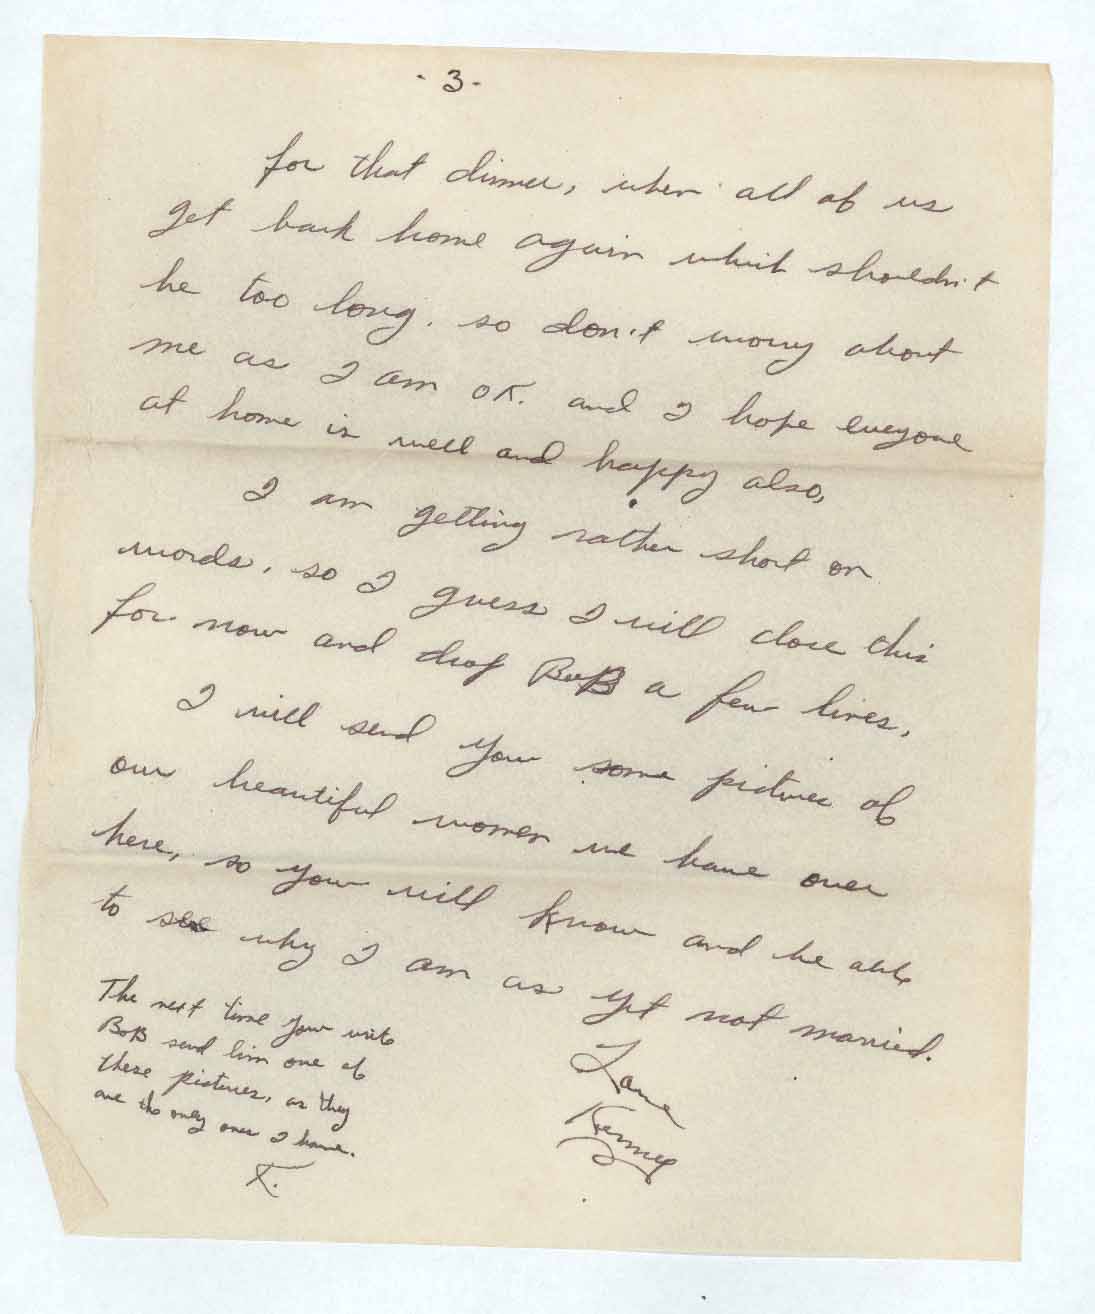 - 3 -
for that dinner, when all of us
get back home again which shouldn't
be too long. so don't worry about
me as I am OK. and I hope everyone
at home is well and happy also,
I am getting rather short on
words, so I guess I will close this
for now and drop BoB a few lines,
I will send you some pictures of
our beautiful women we have over
here, so you will know and be able
to see why I am as yet not married.
Love
Kenney
The next time you write
BoB send him one of
these pictures, as they
are the only ones I have.
K.